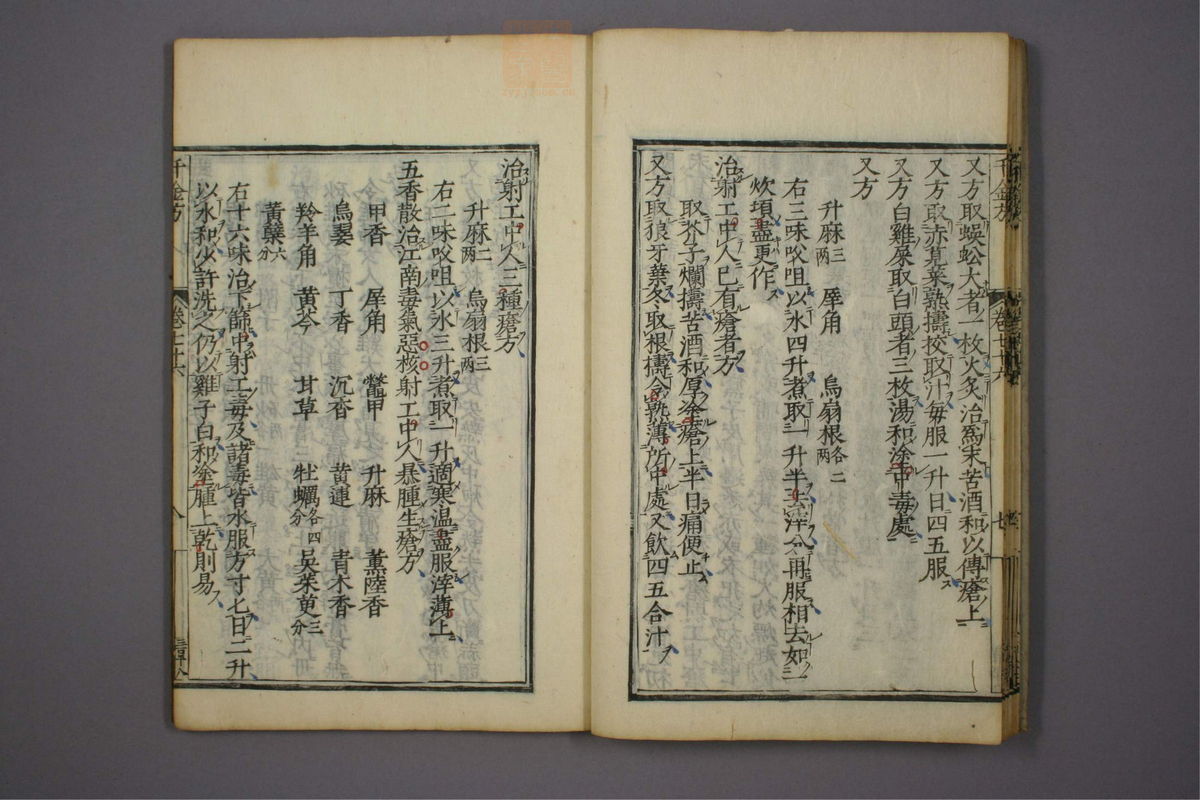 又方取蜈蚣大者一枚火炙治為末苦酒和以傅瘡上
又方取赤莧莖葉熟擣挍取汁每服一升日四五服
又方白雞屎取白頭者三枚湯和塗中毒處
又方
升麻三兩 犀角 烏扇根各二兩
右三味㕮咀以水四升煮取一升半去滓分再服相去如一
炊頃盡更作
治射工中人已有瘡者方
取芥子爛擣苦酒和厚塗瘡上半日痛便止
又方取狼牙葉冬取根擣令熟薄所中處又飲四五合汁
治射工中人三種瘡方
升麻二兩 烏扇根三兩
右二味㕮咀以水三升煮取一升適寒温盡服滓薄上
五香散治江南毒氣惡核射工中人暴腫生瘡方
甲香 犀角 鱉甲 升麻 薰陸香
烏翣 丁香 沉香 黃連 青木香
羚羊角 黃芩 甘草 牡蠣各四分 吳茱萸三分
黃蘗六分
右十六味治下篩中射工毒及諸毒皆水服方寸匕日三升
以水和少許洗之仍以雞子白和塗腫上乾則易
千金方 卷七十六 八